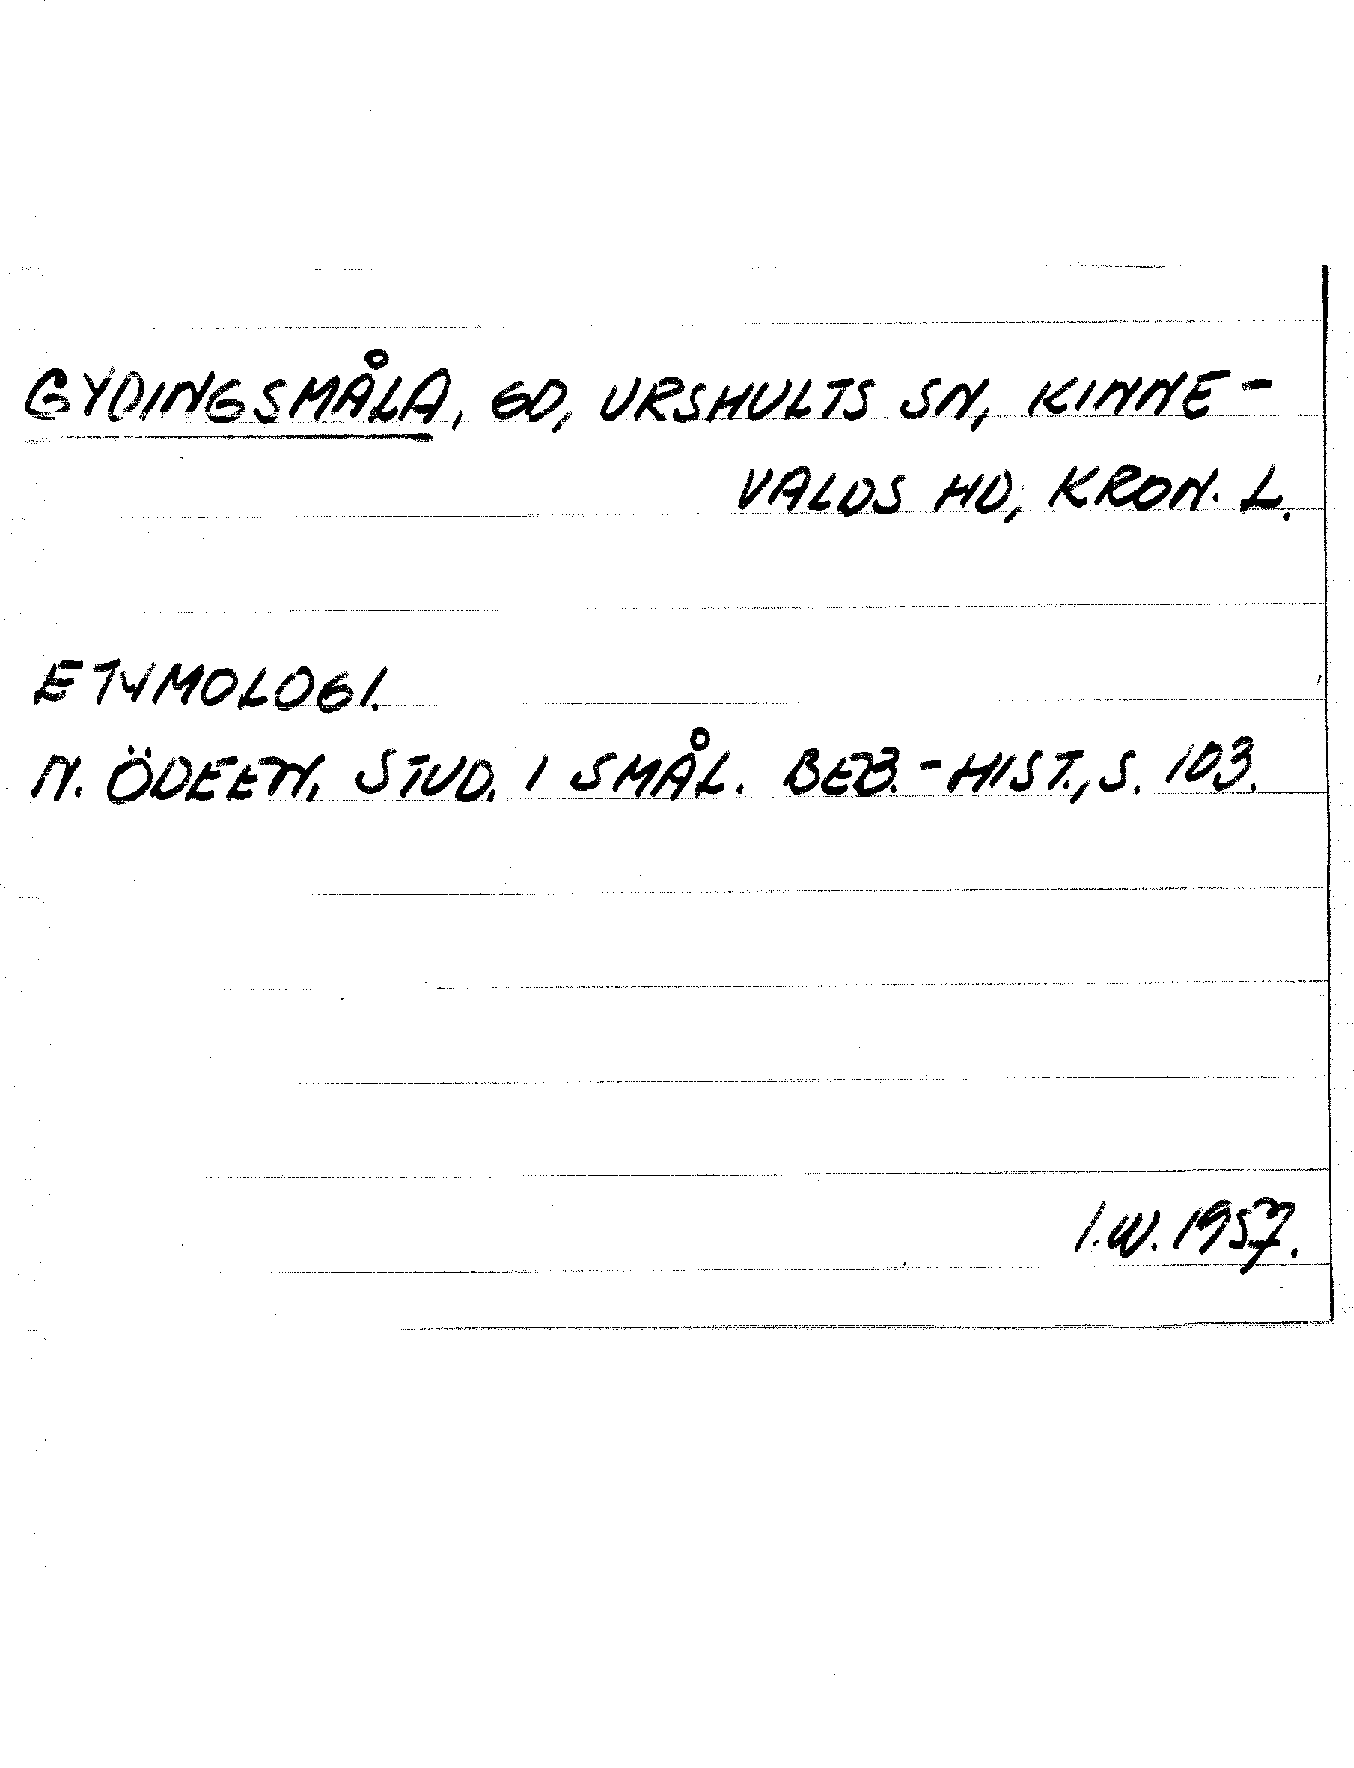 GYDINGSMÅLA, GD, URSHULTS SN, KINNE-
VALDS HD, KRON. L.
ETYMOLOGI.
N. ÖDEEN, STUD. I SMÅL. BEB.-HIST., S. 103.
I.W. 1957.